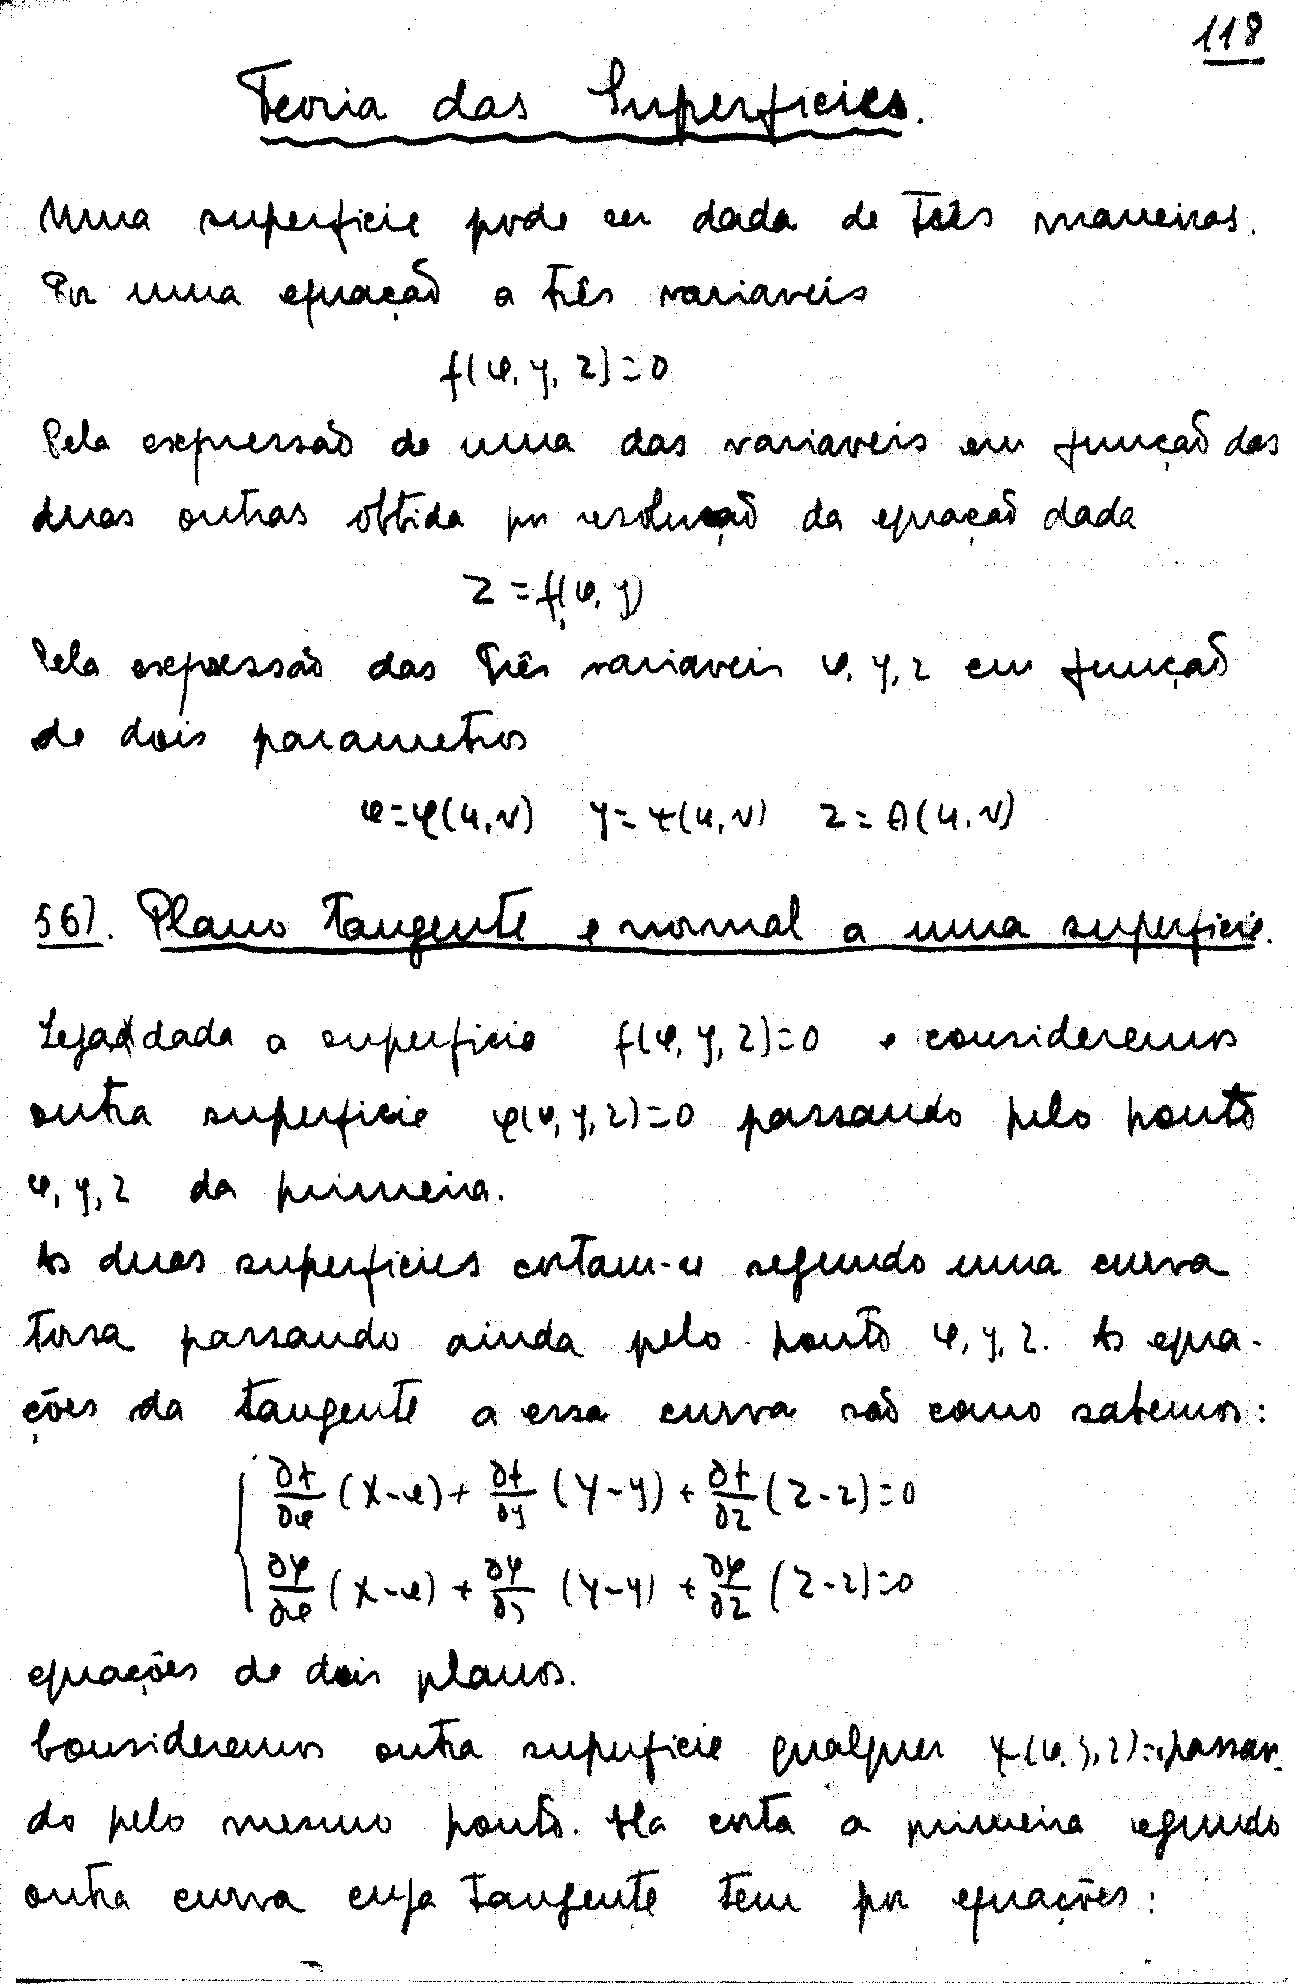 118
Teoria das Superficies.
Uma superficie pode ser dada de três maneiras.
Por uma equação a três variaveis
f(x, y, z)=0
Pela expressão de uma das variaveis em função das
duas outras obtida por resolução da equação dada
z = f(x, y)
Pela expressão das três variaveis x, y, z em função
de dois parametros
x=φ(u,v) y=ψ(u,v) z=θ(u,v)
56). Plano tangente e normal a uma superficie.
Seja dada a superficie f(x, y, z)=0 e consideremos
outra superficie φ(x, y, z)=0 passando pelo ponto
x, y, z da primeira.
As duas superficies cortam-se segundo uma curva
torsa passando ainda pelo ponto x, y, z. As equa-
ções da tangente a essa curva são como sabemos:
∂f/∂x (X-x) + ∂f/∂y (Y-y) + ∂f/∂z (Z-z)=0
∂φ/∂x (X-x) + ∂φ/∂y (Y-y) + ∂φ/∂z (Z-z)=0
equações de dois planos.
Consideremos outra superficie qualquer ψ(x, y, z)=0 passan-
do pelo mesmo ponto. Ela corta a primeira segundo
outra curva cuja tangente tem por equações: